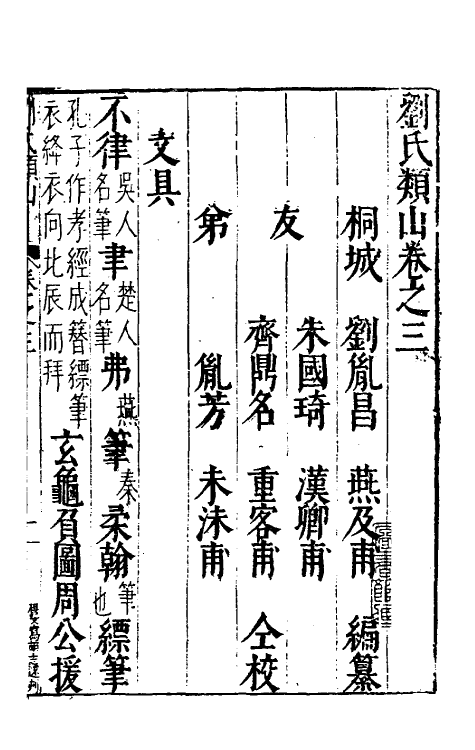 劉氏類山卷之三
桐城 劉胤昌 燕及甫 編纂
友 朱國琦 漢卿甫
齊鼎名 重客甫 仝校
弟 胤芳 未沬甫
文具
不律 吳人名筆 聿 楚人名筆 弗 燕 筆 秦 柔翰 筆也 縹筆
孔子作孝經成簪縹筆衣絳衣向北辰而拜 玄龜負圖周公援
卷之三